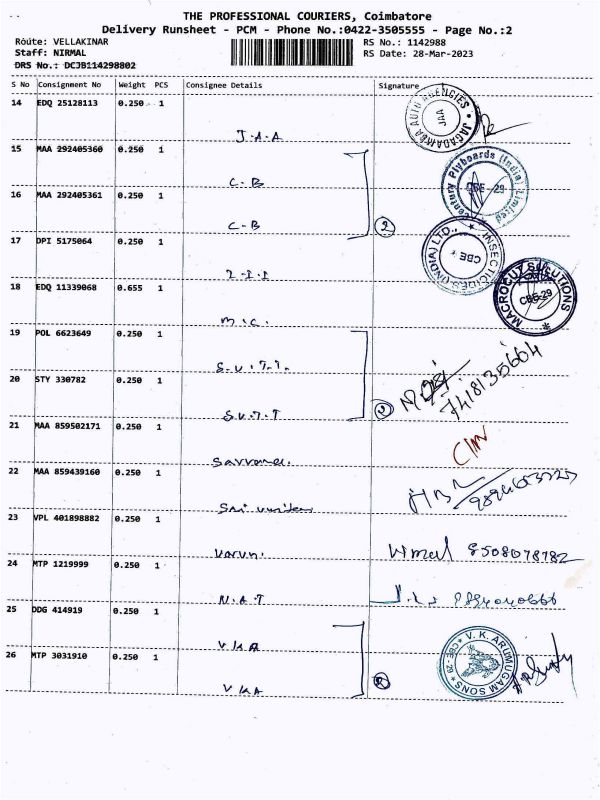 THE PROFESSIONAL COURIERS, Coimbatore
Delivery Runsheet - PCM - Phone No.:0422-3505555 - Page No.:2
Route: VELLAKINAR
RS No.: 1142988
Staff: NIRMAL
RS Date: 28-Mar-2023
DRS No.: DCJB114298802
S No Consignment No Weight PCS Consignee Details Signature
14 EDQ 25128113 0.250 1
J.A.A
JAGADAMBA AUTO AGENCIES
JAA
15 MAA 292405360 0.250 1
C-B
Century Plyboards (India) Limited
CBE - 29
16 MAA 292405361 0.250 1
C-B
2
17 DPI 5175064 0.250 1
I.I.I
INSECTICIDES (INDIA) LTD.,
CBE
18 EDQ 11339068 0.655 1
M.C.
MACROCUT SOLUTIONS
CBE-29
19 POL 6623649 0.250 1
S.V.I.T.
20 STY 330782 0.250 1
S.V.I.T
2
7418135664
21 MAA 859502171 0.250 1
22 MAA 859439160 0.250 1
Sri
23 VPL 401898882 0.250 1
Varun.
8508078782
24 MTP 1219999 0.250 1
N.A.T
25 DDG 414919 0.250 1
VKA
26 MTP 3031910 0.250 1
VKA
2
V.K. ARUMUGAM SONS
CBE-29